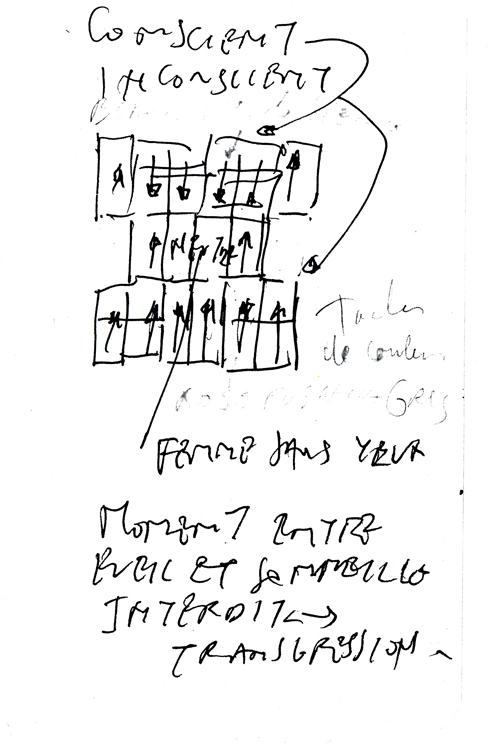 CONSCIENT
INCONSCIENT
Taches
de couleur
GRIS
FEMME SANS YEUX
MOMENT ENTRE
EVEIL ET SOMMEILLE
INTERDIT ↔
TRANSGRESSION